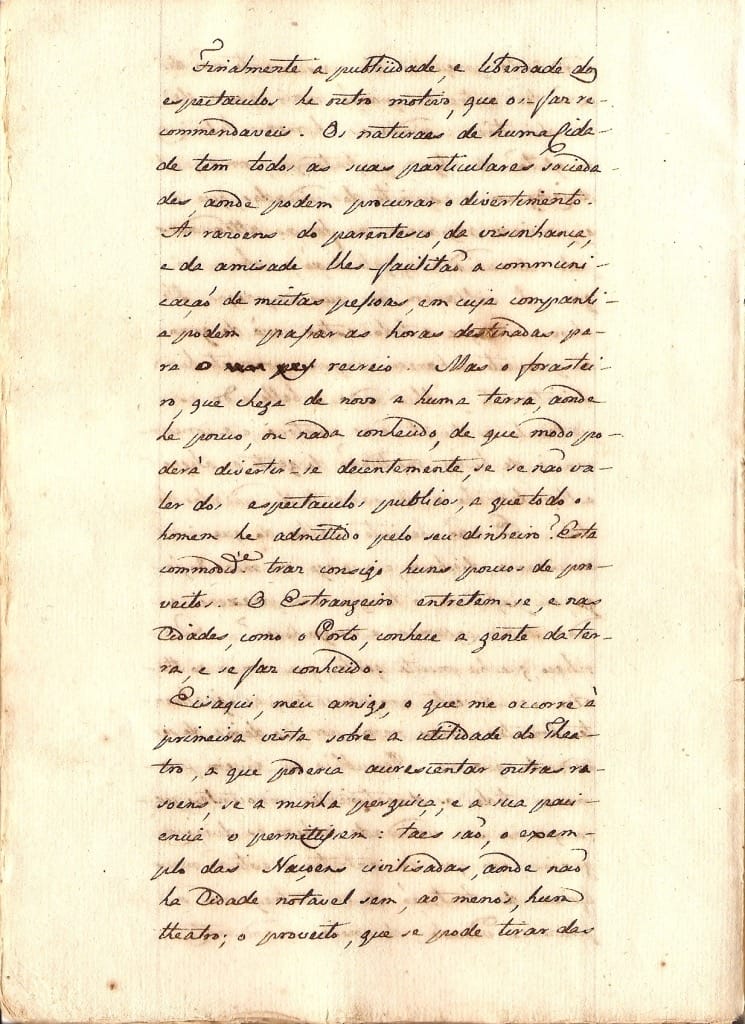 Finalmente a publicidade, e liberdade dos
espectaculos he outro motivo, que os faz re-
commendaveis. Os naturaes de huma Cida-
de tem todos as suas particulares socieda-
des, aonde podem procurar o divertimento.
As razoens do parentesco, da visinhança,
e da amisade lhes facilitaõ a communi-
caçaõ de muitas pessoas, em cuja companhi-
a podem passar as horas destinadas pa-
ra o recreio. Mas o forastei-
ro, que chega de novo a huma terra, aonde
he pouco, ou nada conhecido, de que modo po-
derà divertir-se decentemente, se se não va-
ler dos espectaculos publicos, a que todo o
homem he admittido pelo seu dinheiro? Esta
commodid.e traz consigo huns poucos de pro-
veitos. O Estrangeiro entretem-se, e nas
Cidades, como o Porto, conhece a gente da ter-
ra, e se faz conhecido.
Eisaqui, meu amigo, o que me occorre à
primeira vista sobre a utilidade do Thea-
tro, a que poderia acrescentar outras ra-
soens, se a minha perguiça, e a sua paci-
encia o permittissem: taes saõ, o exem-
plo das Naçoens civilisadas, aonde naõ
ha Cidade notavel sem, ao menos, hum
theatro; o proveito, que se pode tirar das